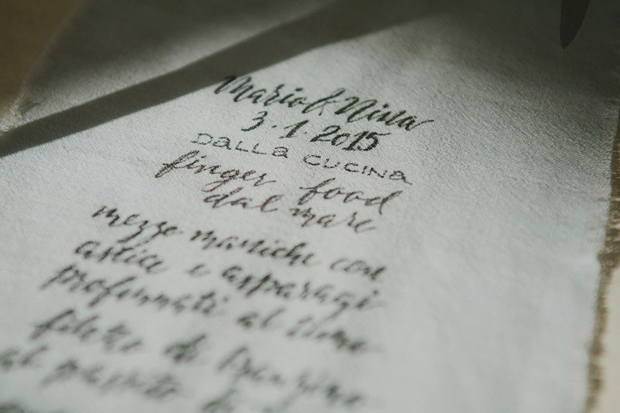 Mario & Nina
3.1.2015
DALLA CUCINA
finger food
dal mare
mezze maniche con
astice e asparagi
profumati al timo
filetto di
al